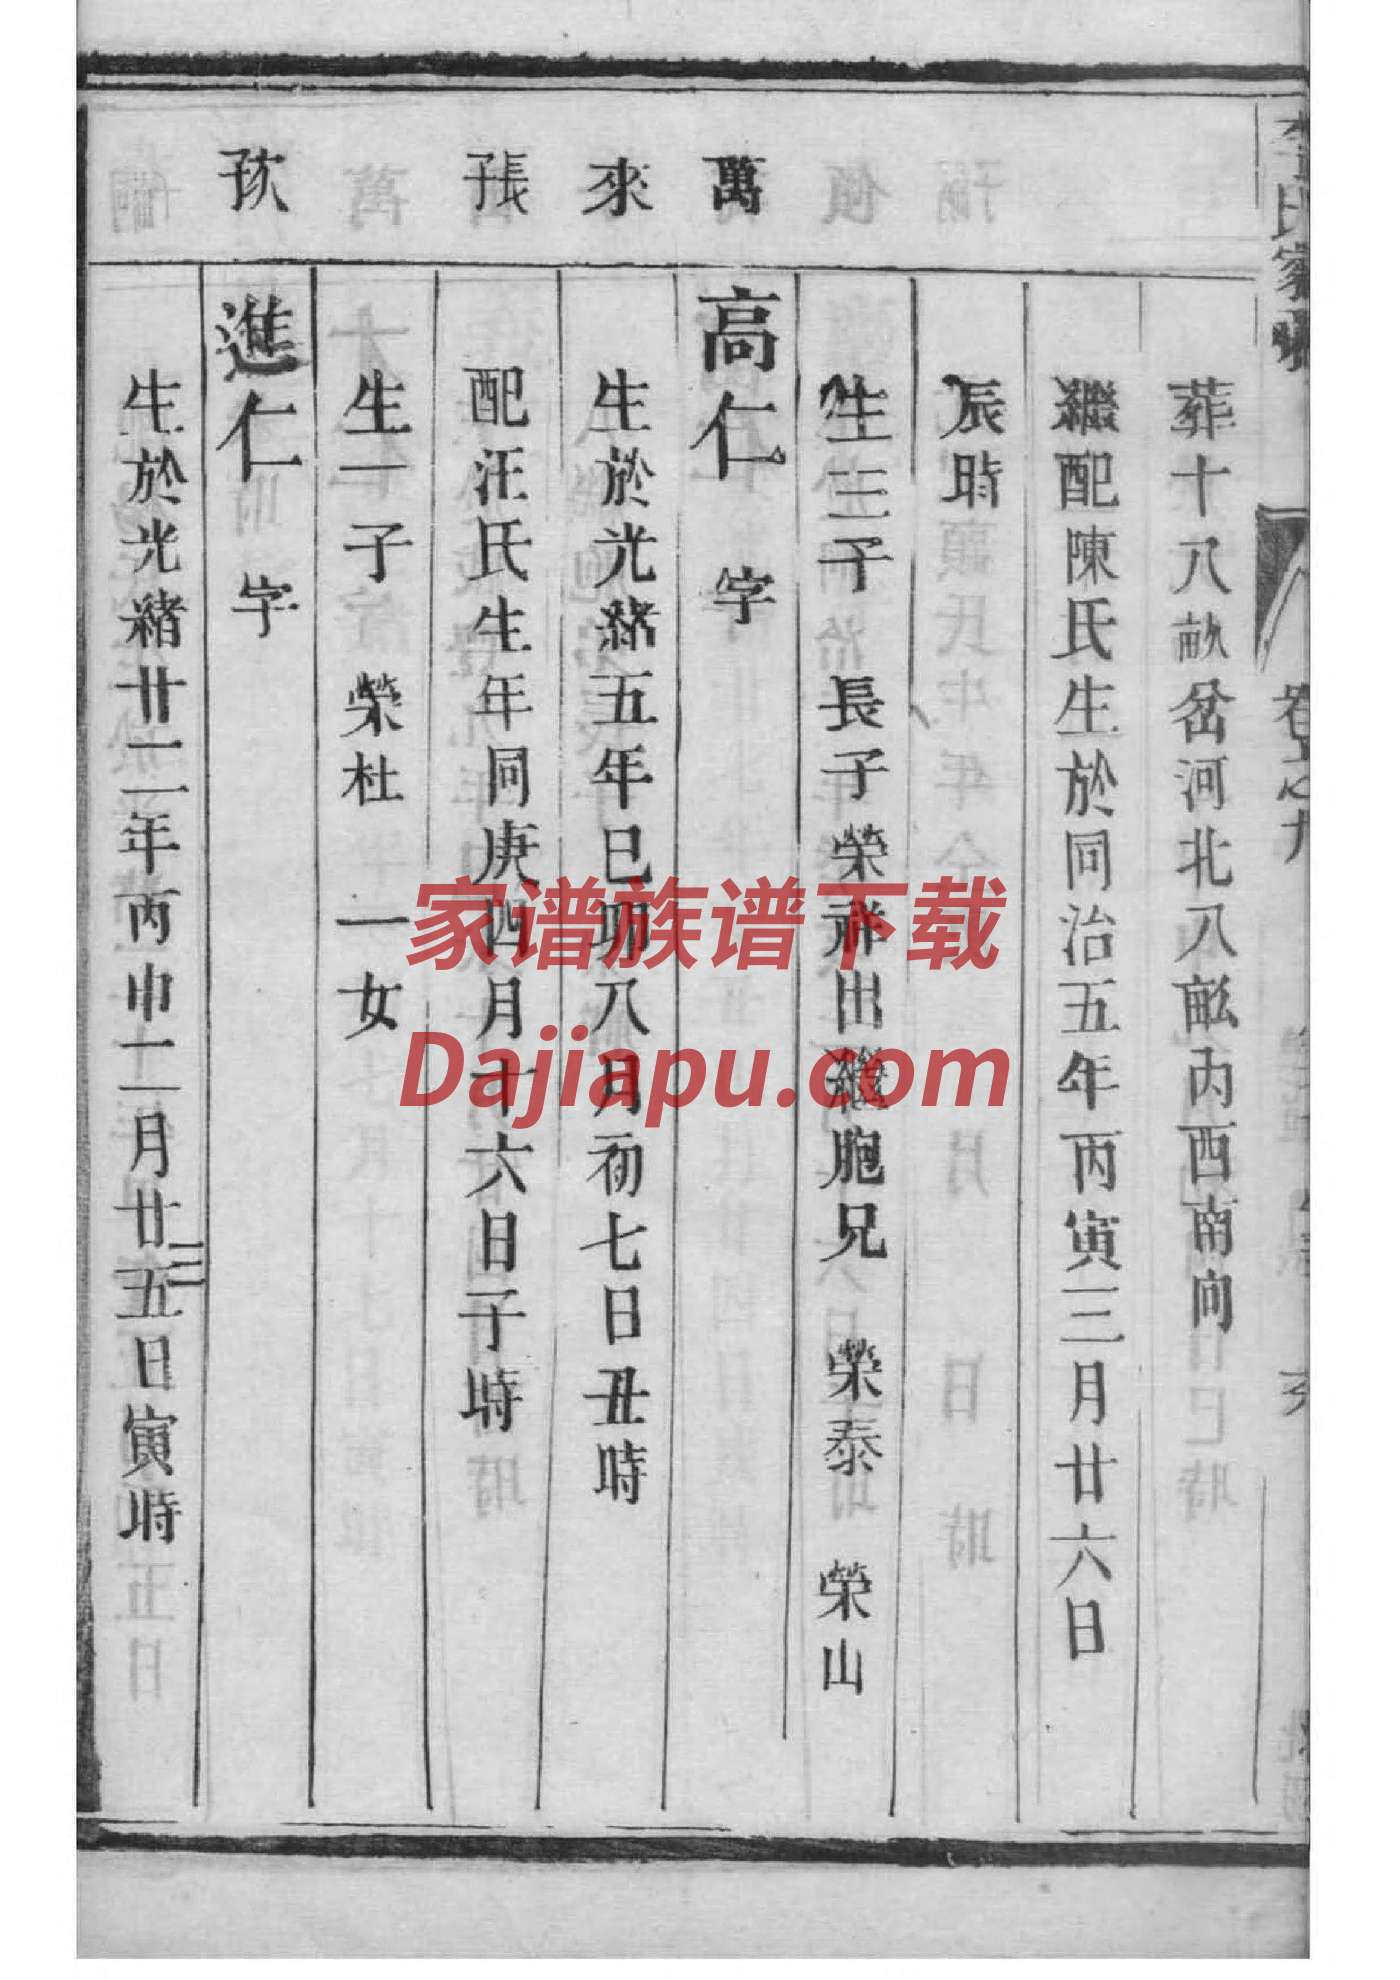 氏家乘
葬十八畝岔河北八畝內西南向
繼配陳氏生於同治五年丙寅三月廿六日
辰時
生三子 長子榮祥出繼胞兄 榮泰 榮山
萬
高仁 字
來
生於光緒五年己卯八月初七日丑時
張
配汪氏生年同庚四月十六日子時
生一子 榮杜 一女
進仁 字
生於光緒廿二年丙申十二月廿五日寅時
家谱族谱下载
Dajiapu.com